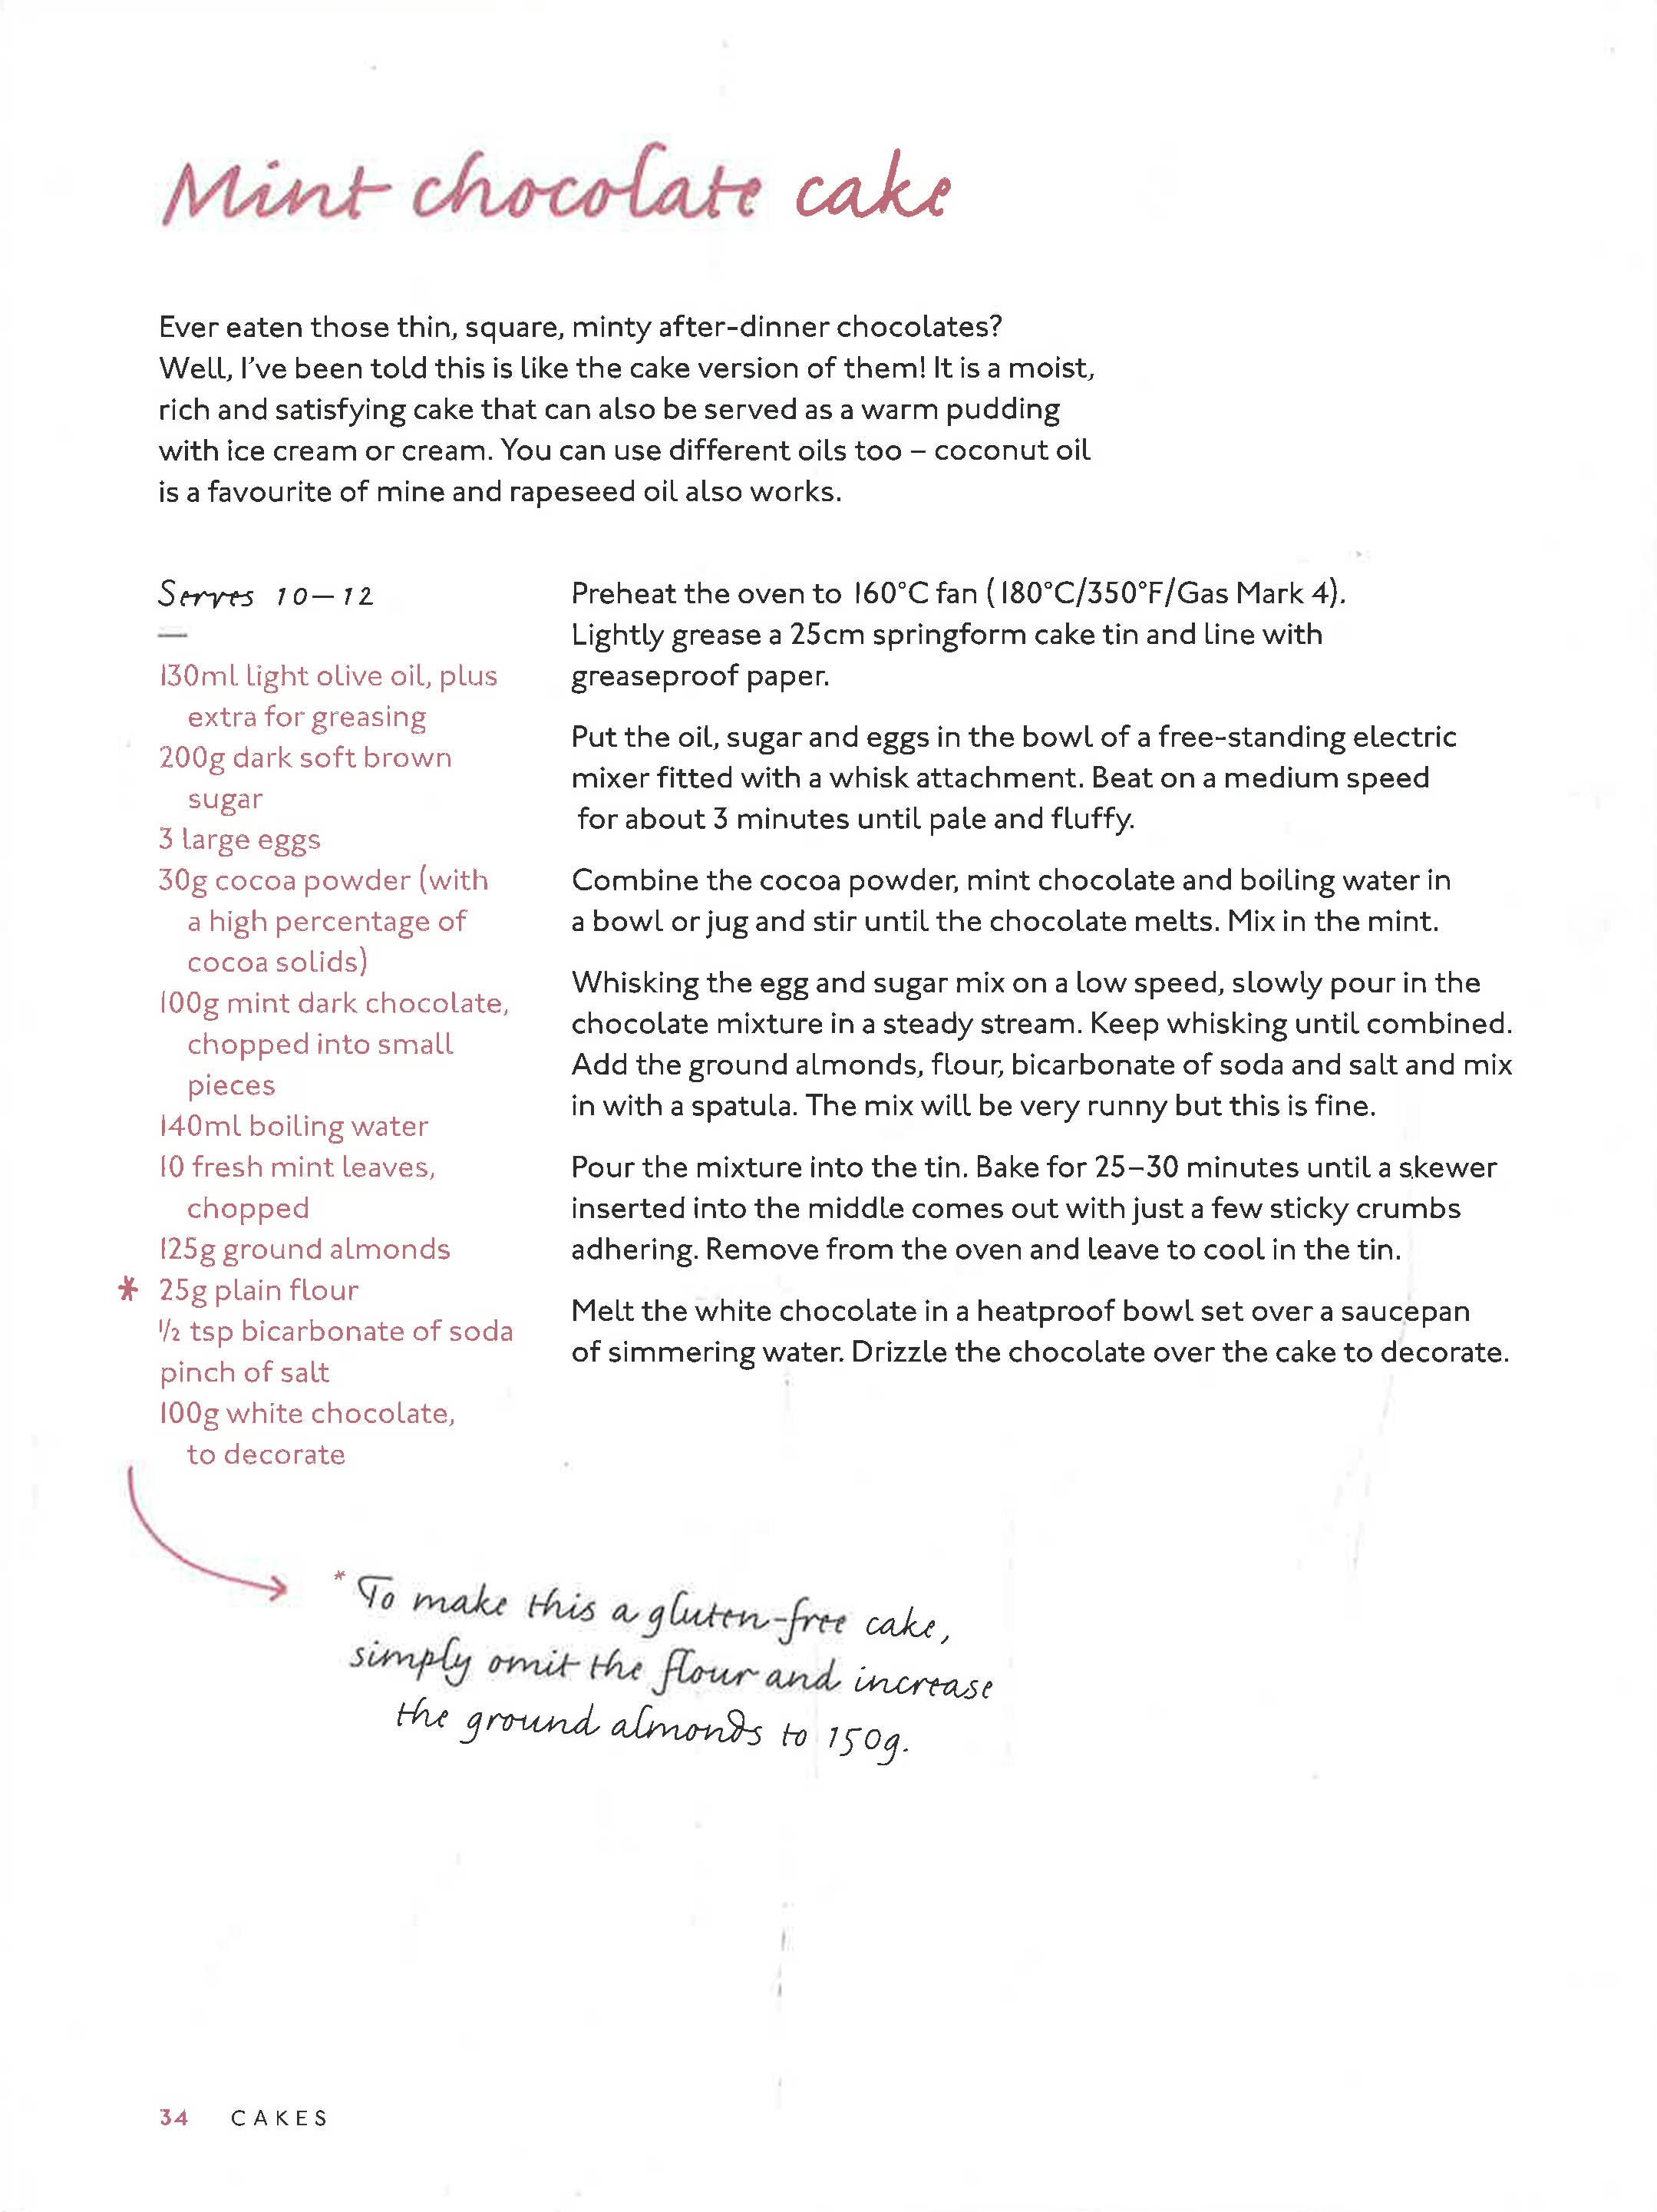 Mint chocolate cake
Ever eaten those thin, square, minty after-dinner chocolates?
Well, I've been told this is like the cake version of them! It is a moist,
rich and satisfying cake that can also be served as a warm pudding
with ice cream or cream. You can use different oils too – coconut oil
is a favourite of mine and rapeseed oil also works.
Serves 10–12
130ml light olive oil, plus
extra for greasing
200g dark soft brown
sugar
3 large eggs
30g cocoa powder (with
a high percentage of
cocoa solids)
100g mint dark chocolate,
chopped into small
pieces
140ml boiling water
10 fresh mint leaves,
chopped
125g ground almonds
* 25g plain flour
1/2 tsp bicarbonate of soda
pinch of salt
100g white chocolate,
to decorate
Preheat the oven to 160°C fan (180°C/350°F/Gas Mark 4).
Lightly grease a 25cm springform cake tin and line with
greaseproof paper.
Put the oil, sugar and eggs in the bowl of a free-standing electric
mixer fitted with a whisk attachment. Beat on a medium speed
for about 3 minutes until pale and fluffy.
Combine the cocoa powder, mint chocolate and boiling water in
a bowl or jug and stir until the chocolate melts. Mix in the mint.
Whisking the egg and sugar mix on a low speed, slowly pour in the
chocolate mixture in a steady stream. Keep whisking until combined.
Add the ground almonds, flour, bicarbonate of soda and salt and mix
in with a spatula. The mix will be very runny but this is fine.
Pour the mixture into the tin. Bake for 25–30 minutes until a skewer
inserted into the middle comes out with just a few sticky crumbs
adhering. Remove from the oven and leave to cool in the tin.
Melt the white chocolate in a heatproof bowl set over a saucepan
of simmering water. Drizzle the chocolate over the cake to decorate.
* To make this a gluten-free cake,
simply omit the flour and increase
the ground almonds to 150g.
34 CAKES